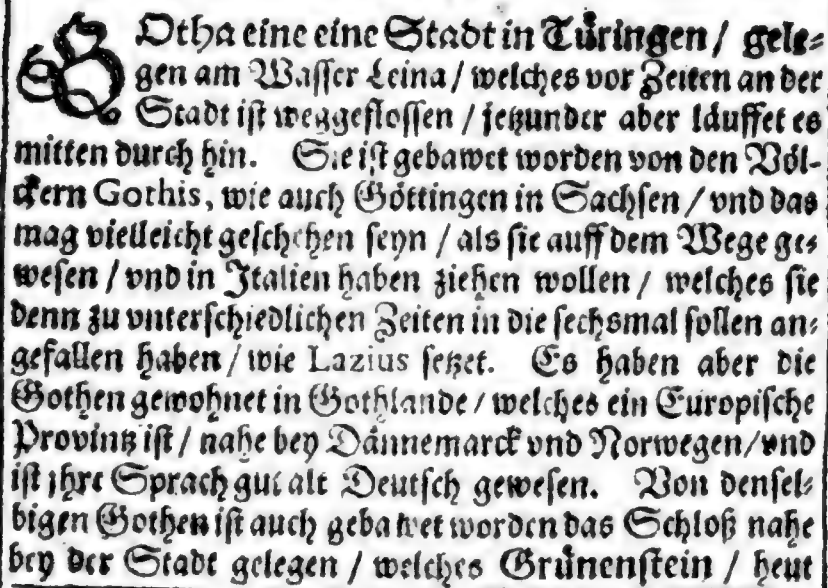 GOtha eine eine Stadt in Türingen / gele⸗
gen am Wasser Leina / welches vor Zeiten an der
Stadt ist weggeflossen / jetzunder aber läuffet es
mitten durch hin. Sie ist gebawet worden von den Völ-
ckern Gothis, wie auch Göttingen in Sachsen / vnd das
mag vielleicht geschehen seyn / als sie auff dem Wege ge⸗
wesen / vnd in Italien haben ziehen wollen / welches sie
denn zu vnterschiedlichen Zeiten in die sechsmal sollen an⸗
gefallen haben / wie Lazius setzet. Es haben aber die
Gothen gewohnet in Gothlande / welches ein Europische
Provintz ist / nahe bey Dännemarck vnd Norwegen / vnd
ist jhre Sprach gut alt Deutsch gewesen. Von densel⸗
bigen Gothen ist auch gebawet worden das Schloß nahe
bey der Stadt gelegen / welches Grünenstein / heut